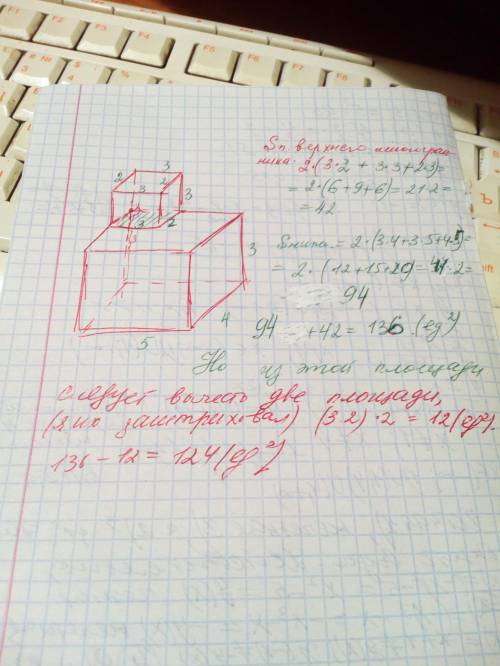 Sп верхнего многогран-
ника: 2·(3·2 + 3·3 + 2·3)=
= 2·(6+9+6) = 21·2=
= 42
2 3 3 2 3 3 2
Sнижн. = 2·(3·4+3·5+4·5)=
= 2·(12+15+20)= 47·2=
94
3
4
5
94 +42 = 136 (ед²)
Но из этой площади
следует вычесть две площади,
(я их заштриховал) (3·2)·2 = 12(ед²).
136 - 12 = 124 (ед²)